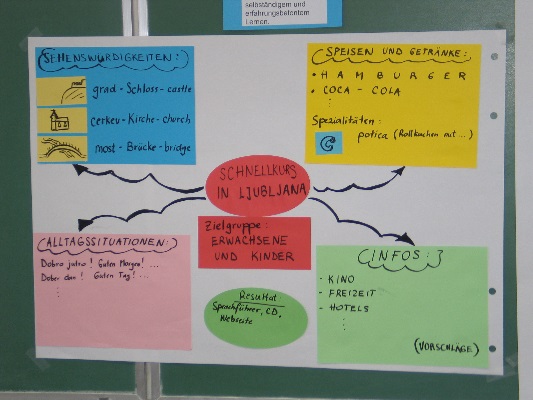 selbständigem und
erfahrungsbetontem
Lernen.
SEHENSWÜRDIGKEITEN:
grad - Schloss - castle
cerkev - Kirche - church
most - Brücke - bridge
SPEISEN UND GETRÄNKE:
• HAMBURGER
• COCA - COLA
Spezialitäten:
potica (Rollkuchen mit ..)
SCHNELLKURS
IN LJUBLJANA
Zielgruppe:
ERWACHSENE
UND KINDER
Resultat:
Sprachführer, CD,
Webseite
ALLTAGSSITUATIONEN:
Dobro jutro! Guten Morgen! ...
Dober dan! Guten Tag! ...
INFOS:
- KINO
- FREIZEIT
- HOTELS
(VORSCHLÄGE)